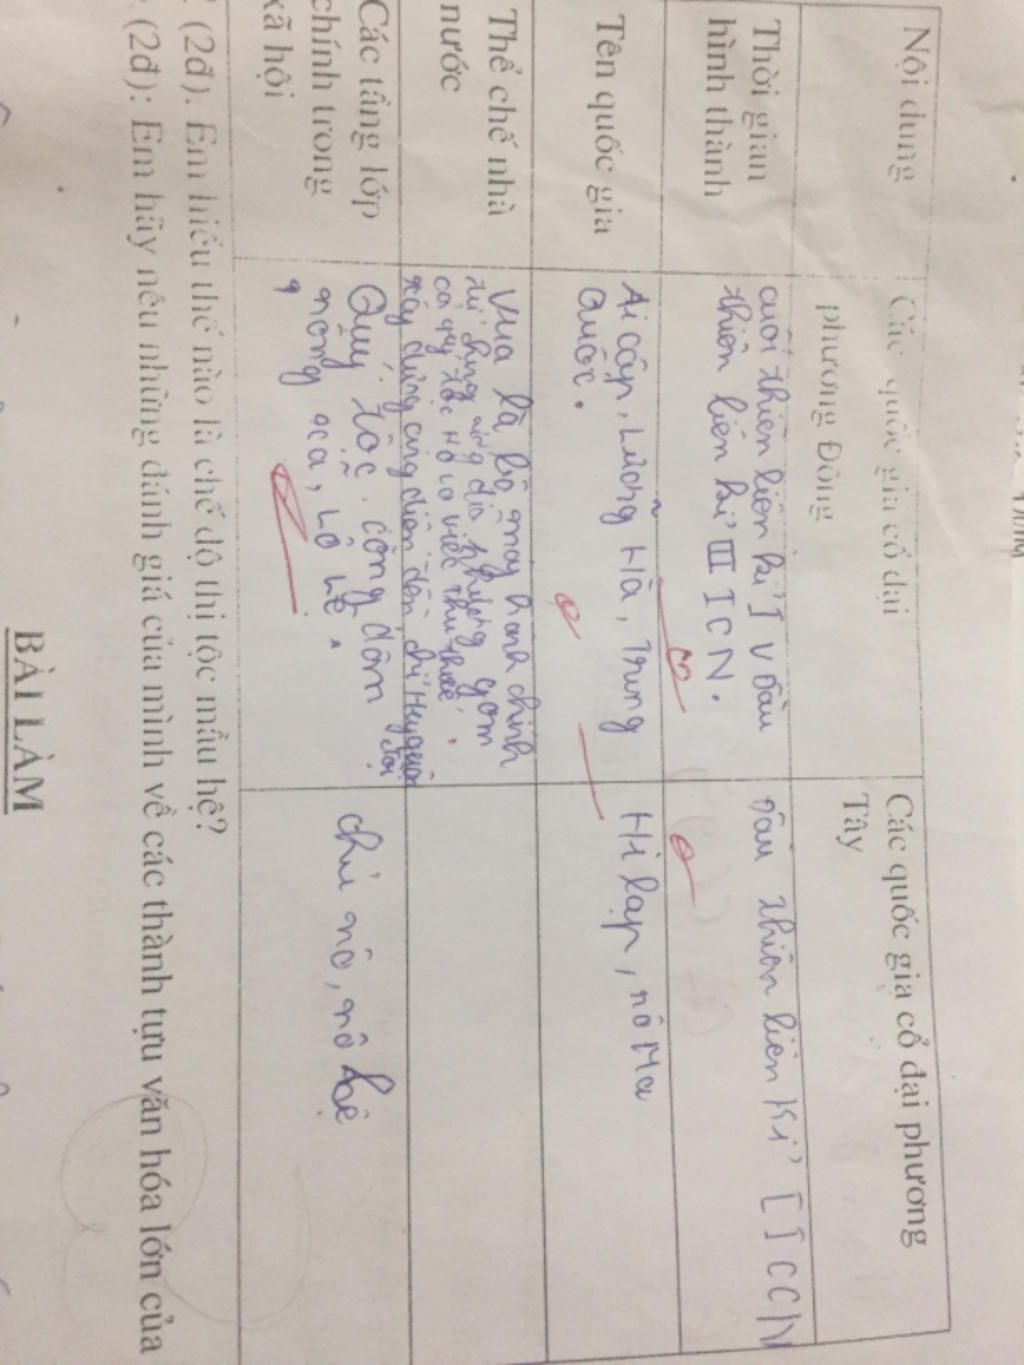 Nội dung
Các quốc gia cổ đại
phương Đông
Các quốc gia cổ đại phương
Tây
Thời gian
hình thành
cuối thiên liên kỉ IV đầu
thiên liên kỉ III ICN.
Đầu thiên liên Kỉ I ICCN
Tên quốc gia
Ai cập, Lưỡng Hà, Trung
Quốc.
Hi lạp, rô Ma
Thể chế nhà
nước
Vua là bộ máy hanh chính
từ trung ương địa phương gồm
cả quý tộc Hồ lo việc thu thuế
xây dựng cung điện đền chỉ Huy quân
đội
Các tầng lớp
chính trong
xã hội
Quý tộc, công dân
nông gca, Lô Lệ.
chủ nô, nô lệ
(2đ). Em hiểu thế nào là chế độ thị tộc mẫu hệ?
(2đ): Em hãy nêu những đánh giá của mình về các thành tựu văn hóa lớn của
BÀI LÀM